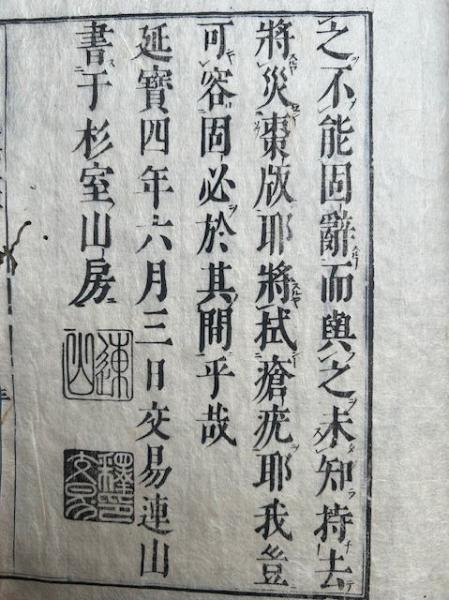 之不能固辭而與之未知持去
將災棗版耶將拭瘡疣耶我豈
可容固必於其間乎哉
延寶四年六月三日交易連山
書于杉室山房
連山